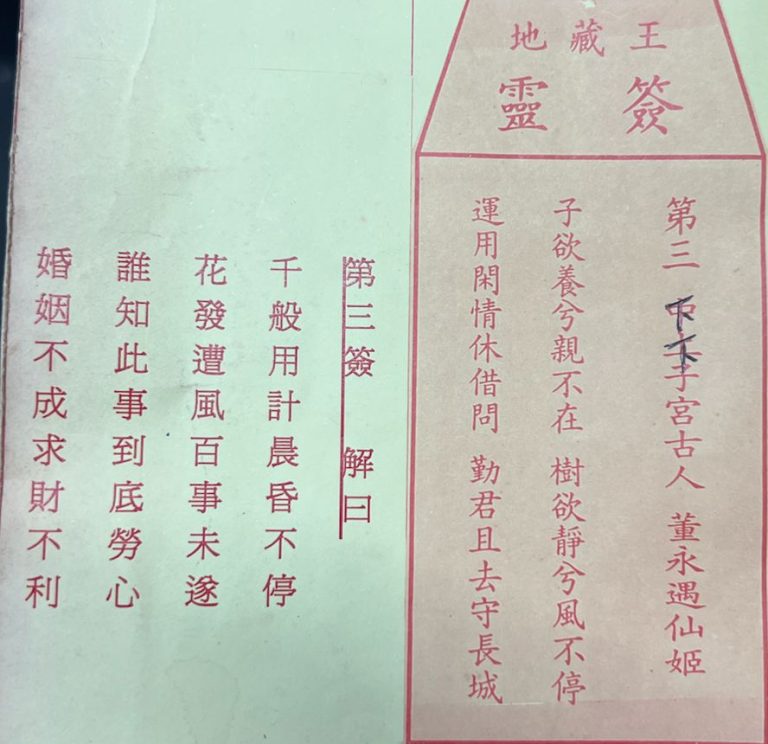 地藏王
靈簽
第三 下下子宮古人 董永遇仙姬
子欲養兮親不在 樹欲靜兮風不停
運用閑情休借問 勤君且去守長城
第三簽 解曰
千般用計晨昏不停
花發遭風百事未遂
誰知此事到底勞心
婚姻不成求財不利